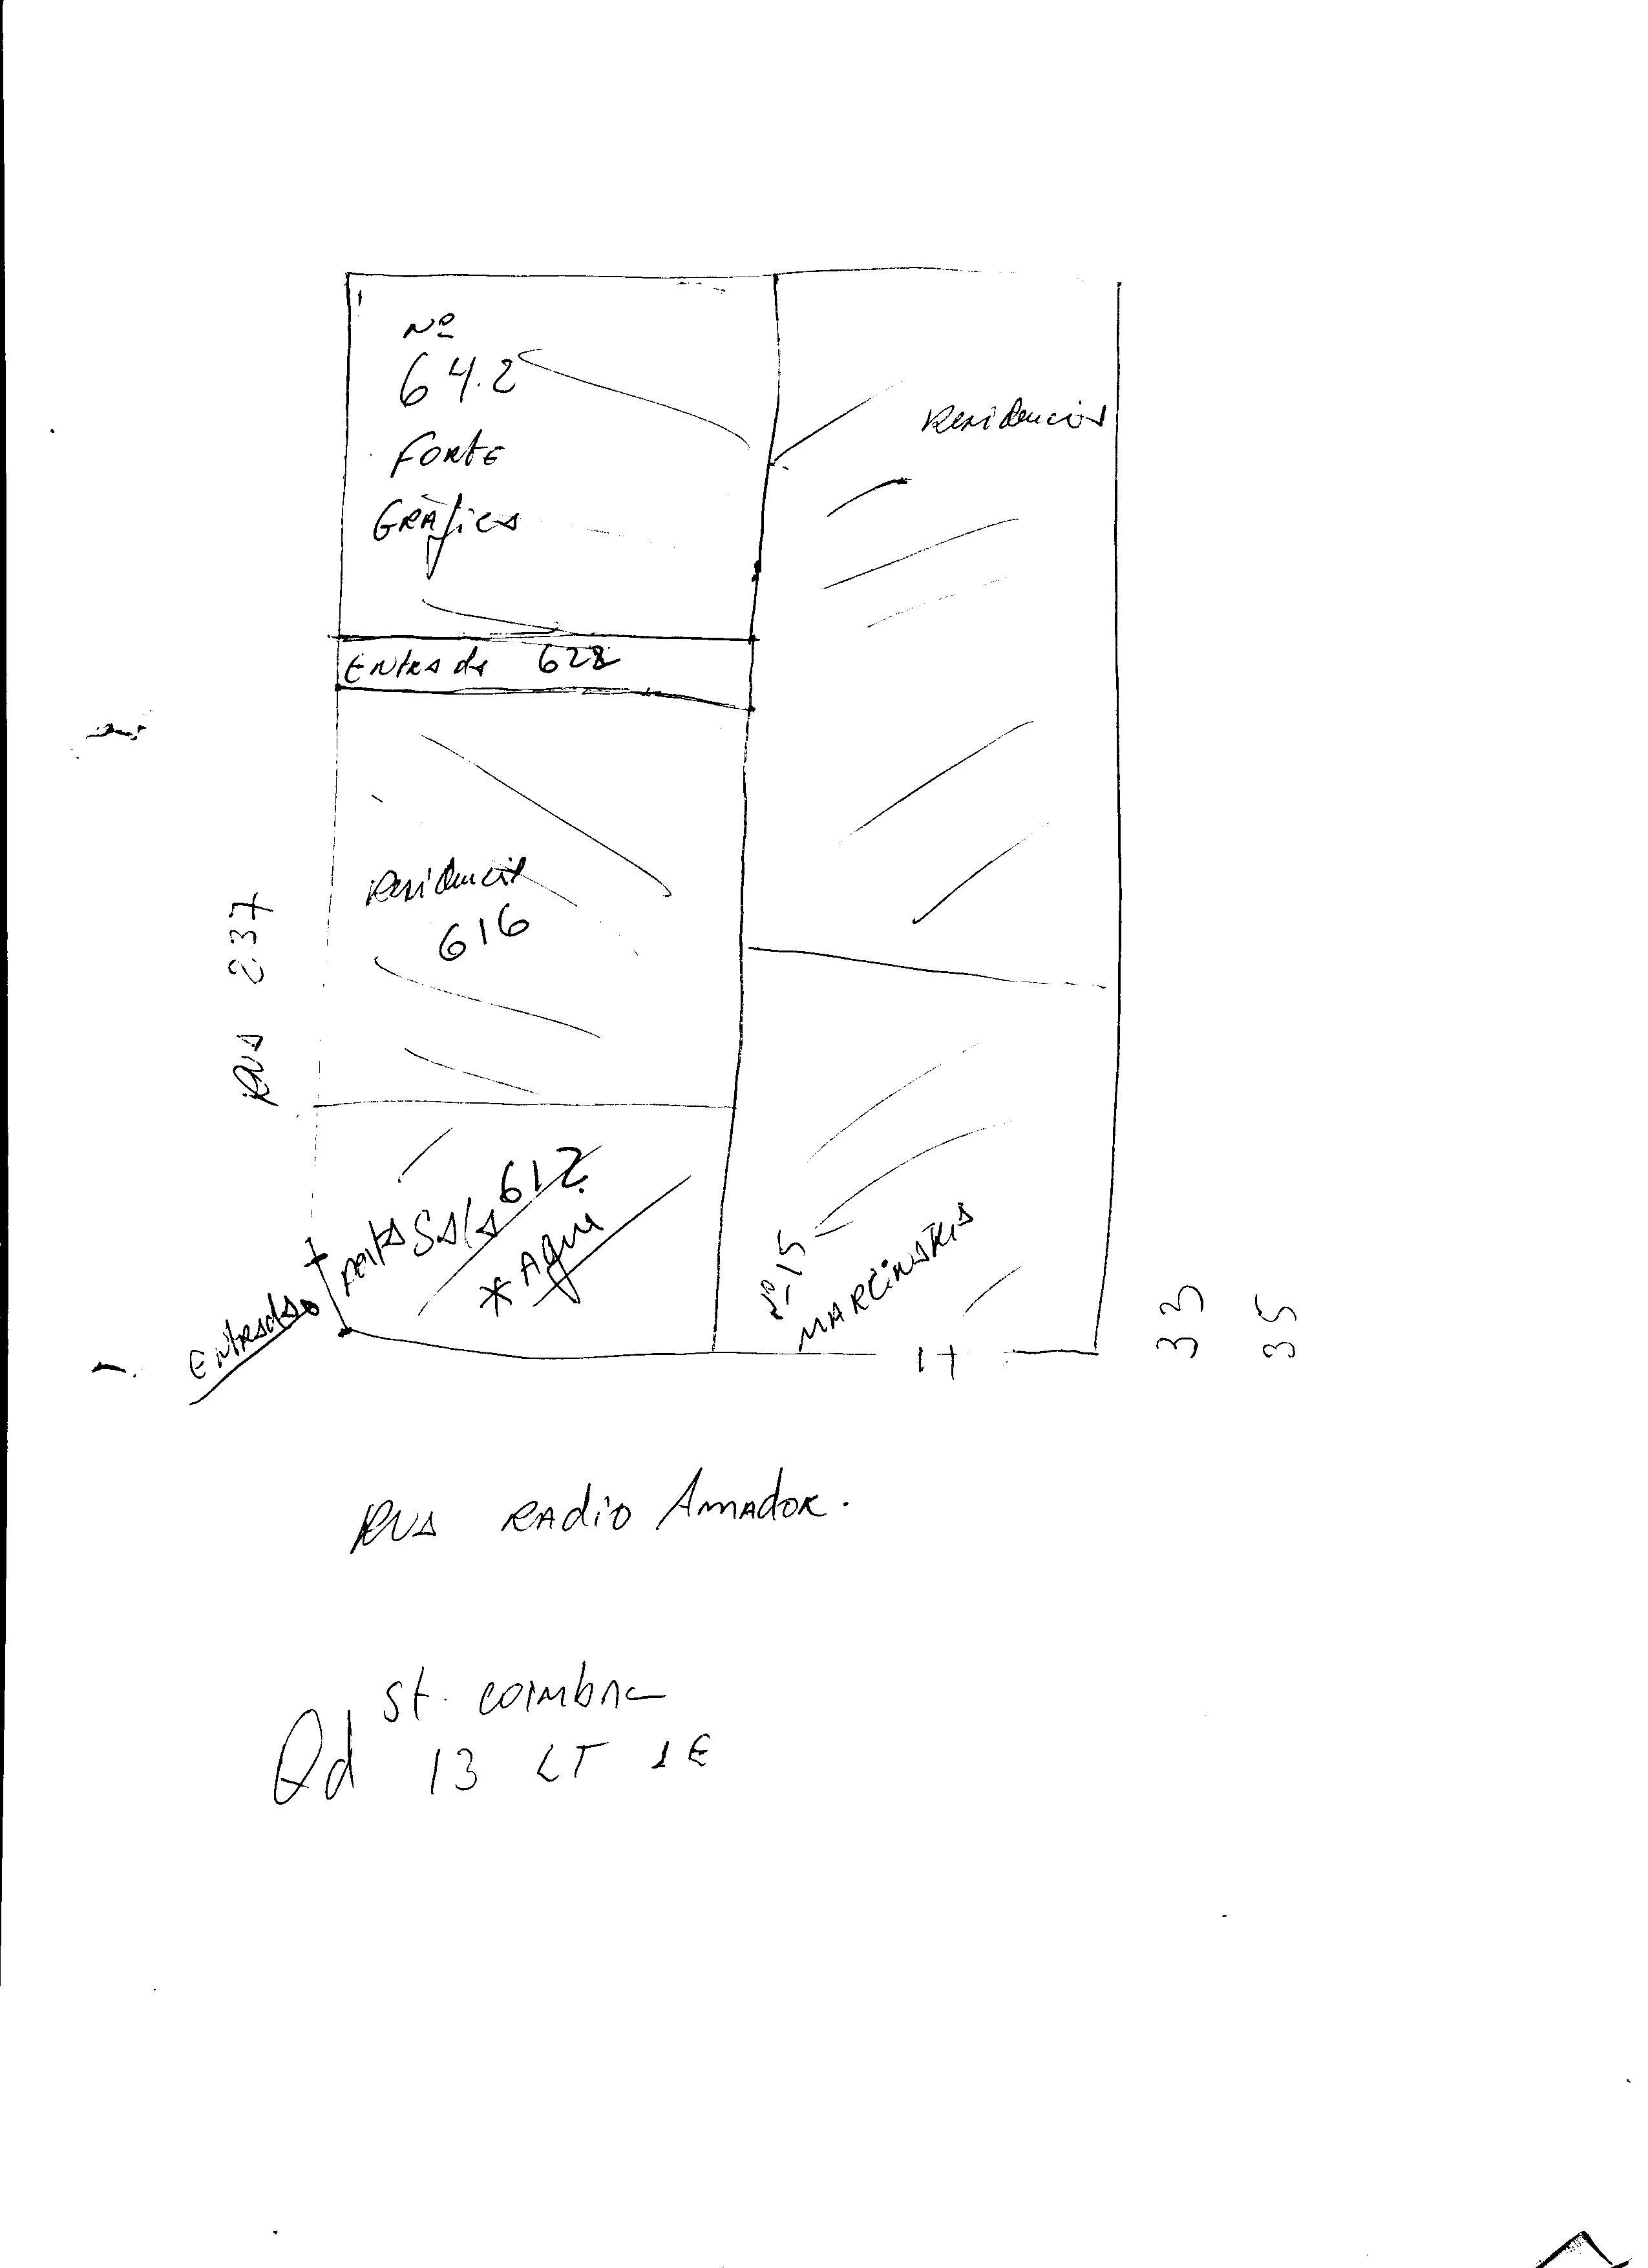 Nº
64.2
FORTE
GRÁfica
Residencias
Entrada 628
Residencia
616
RUA 237
612
Sala
* Aqui
Entrada
Nº 15
MARCINARIA
17
33
35
RUA RADIO AMADOR.
St. coimbra
Qd 13 LT 1E